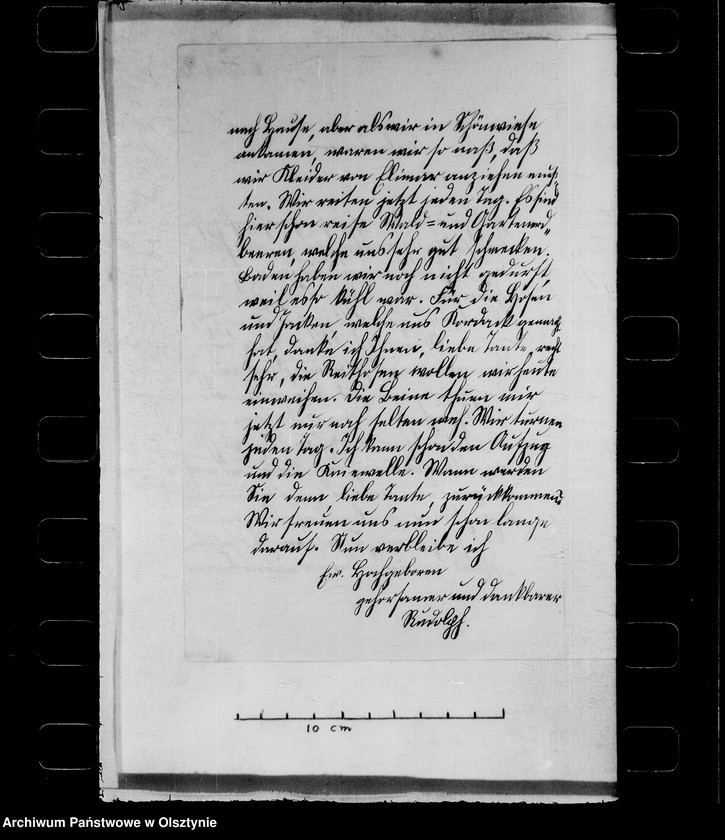 nach Hause, aber als wir in Schönwiese
ankamen, waren wir so naß, daß
wir Kleider von Elimar anziehen muß-
ten. Wir reiten jetzt jeden Tag. Es sind
hier schon reife Wald= und Gartenerd=
beeren, welche uns sehr gut schmecken.
Baden haben wir noch nicht gedurft,
weil es so kühl war. Für die Hosen
und Jacken, welche uns Kordack gemacht
hat, danke ich Ihnen, liebe Tante, recht
sehr, die Reithosen wollen wir heute
einweihen. Die Beine thuen mir
jetzt nur noch selten weh. Wir turnen
jeden Tag. Ich kann schon den Aufzug
und die Kniewelle. Wann werden
Sie denn, liebe Tante, zurückkommen?
Wir freuen uns nun schon lange
darauf. Nun verbleibe ich
Ew. Hochgeboren
gehorsamer und dankbarer
Rudolph.
10 cm
Archiwum Państwowe w Olsztynie